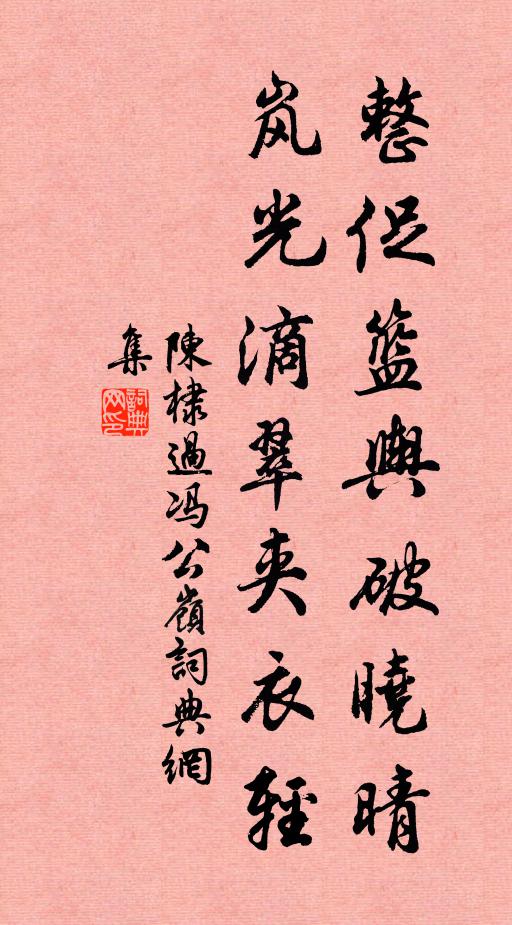 整促籃輿破曉晴
岚光滴翠夹衣輕
陳棣過冯公嶺詞典網
集
詞典網印